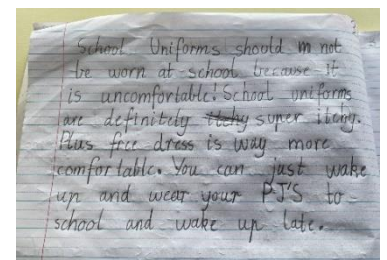 School Uniforms should m not
be worn at school because it
is uncomfortable! School uniforms
are definitely itchy super itchy.
Plus free dress is way more
comfortable. You can just wake
up and wear your PJ'S to
school and wake up late.